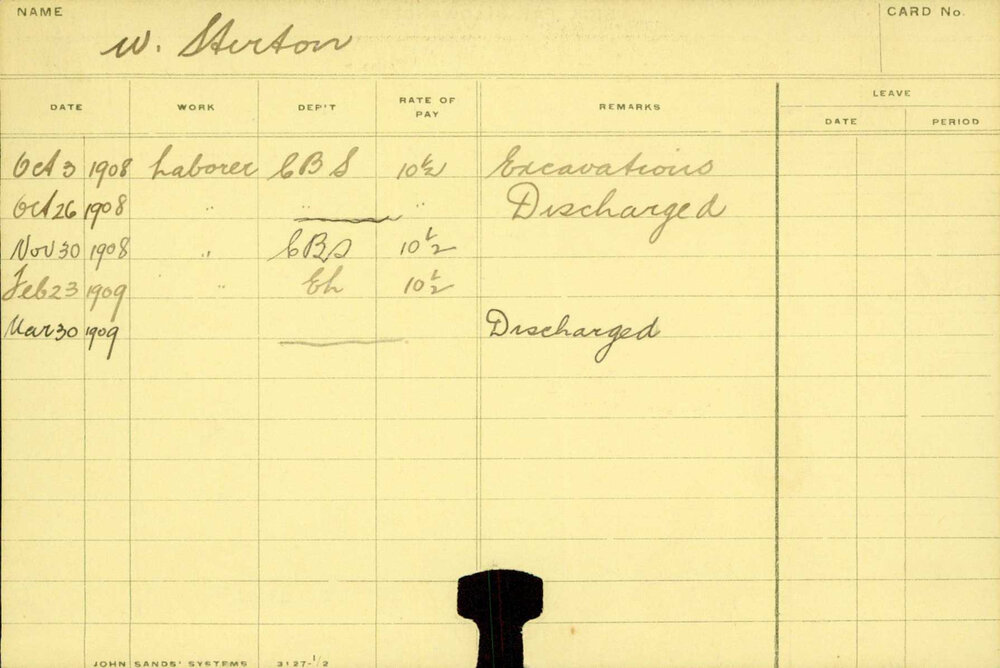 NAME
CARD No.
W. Sterton
DATE WORK DEP'T RATE OF PAY REMARKS LEAVE
DATE PERIOD
Oct 3 1908 Laborer CBS 10½ Excavations
Oct 26 1908 " " " Discharged
Nov 30 1908 " CBS 10½
Feb 23 1909 " Eh 10½
Mar 30 1909 Discharged
JOHN SANDS' SYSTEMS 3127-1/2